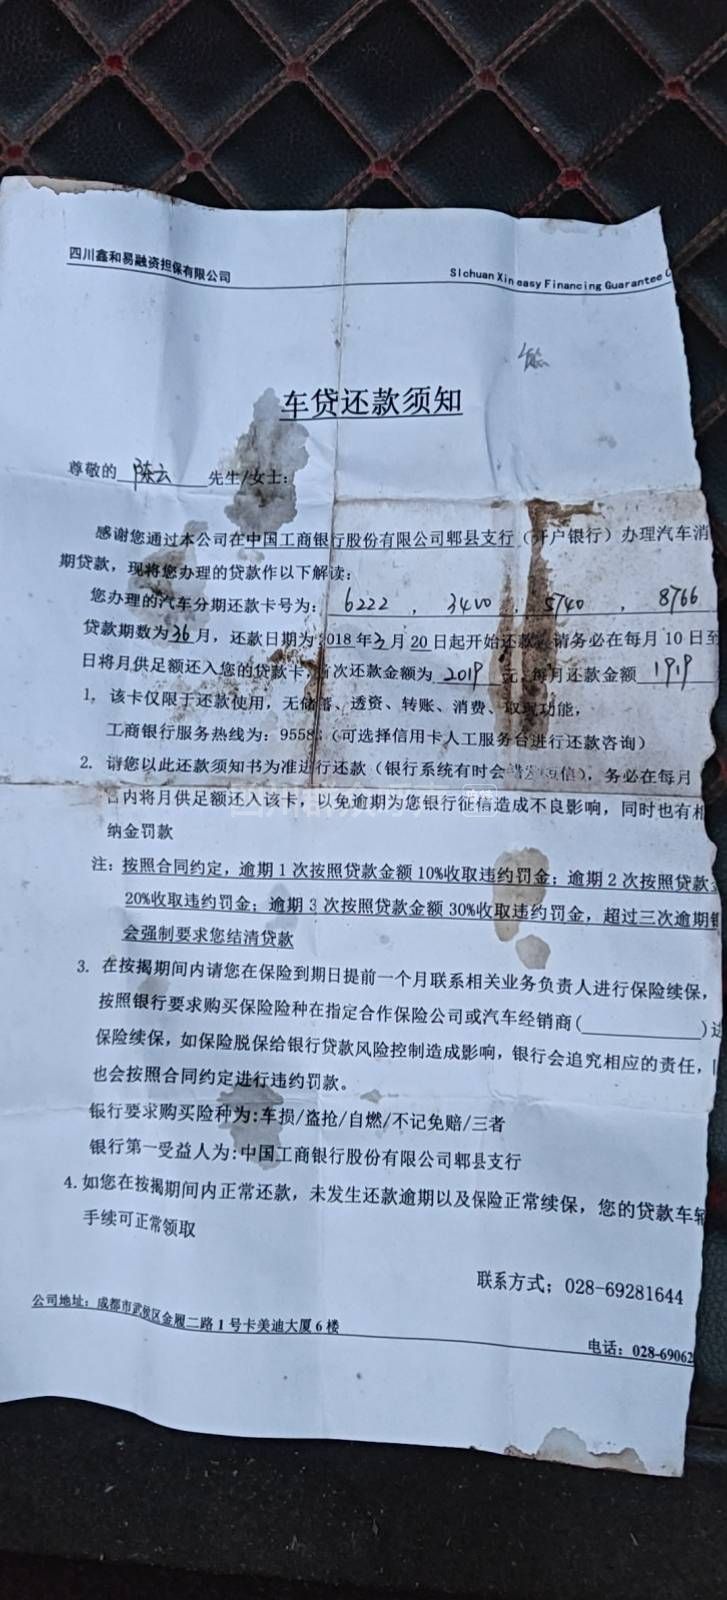 四川鑫和易融资担保有限公司
Sichuan Xin easy Financing Guarantee C
车贷还款须知
尊敬的 陈云 先生/女士:
感谢您通过本公司在中国工商银行股份有限公司郫县支行(开户银行)办理汽车消
期贷款,现将您办理的贷款作以下解读:
您办理的汽车分期还款卡号为: 6222 , 3400 , 5740 , 8766
贷款期数为36月,还款日期为2018年3月20日起开始还款,请务必在每月10日至
日将月供足额还入您的贷款卡,首次还款金额为 2019 元,每月还款金额 1919
1, 该卡仅限于还款使用,无储蓄、透资、转账、消费、取现功能,
工商银行服务热线为:9558 (可选择信用卡人工服务台进行还款咨询)
2. 请您以此还款须知书为准进行还款(银行系统有时会错发短信),务必在每月
内将月供足额还入该卡,以免逾期为您银行征信造成不良影响,同时也有相
纳金罚款
注:按照合同约定,逾期1次按照贷款金额10%收取违约罚金;逾期2次按照贷款
20%收取违约罚金;逾期3次按照贷款金额30%收取违约罚金,超过三次逾期银
会强制要求您结清贷款
3. 在按揭期间内请您在保险到期日提前一个月联系相关业务负责人进行保险续保,
按照银行要求购买保险险种在指定合作保险公司或汽车经销商( )进
保险续保,如保险脱保给银行贷款风险控制造成影响,银行会追究相应的责任,
也会按照合同约定进行违约罚款。
银行要求购买险种为:车损/盗抢/自燃/不记免赔/三者
银行第一受益人为:中国工商银行股份有限公司郫县支行
4.如您在按揭期间内正常还款,未发生还款逾期以及保险正常续保,您的贷款车辆
手续可正常领取
联系方式;028-69281644
公司地址:成都市武侯区金履二路1号卡美迪大厦6楼
电话:028-69062